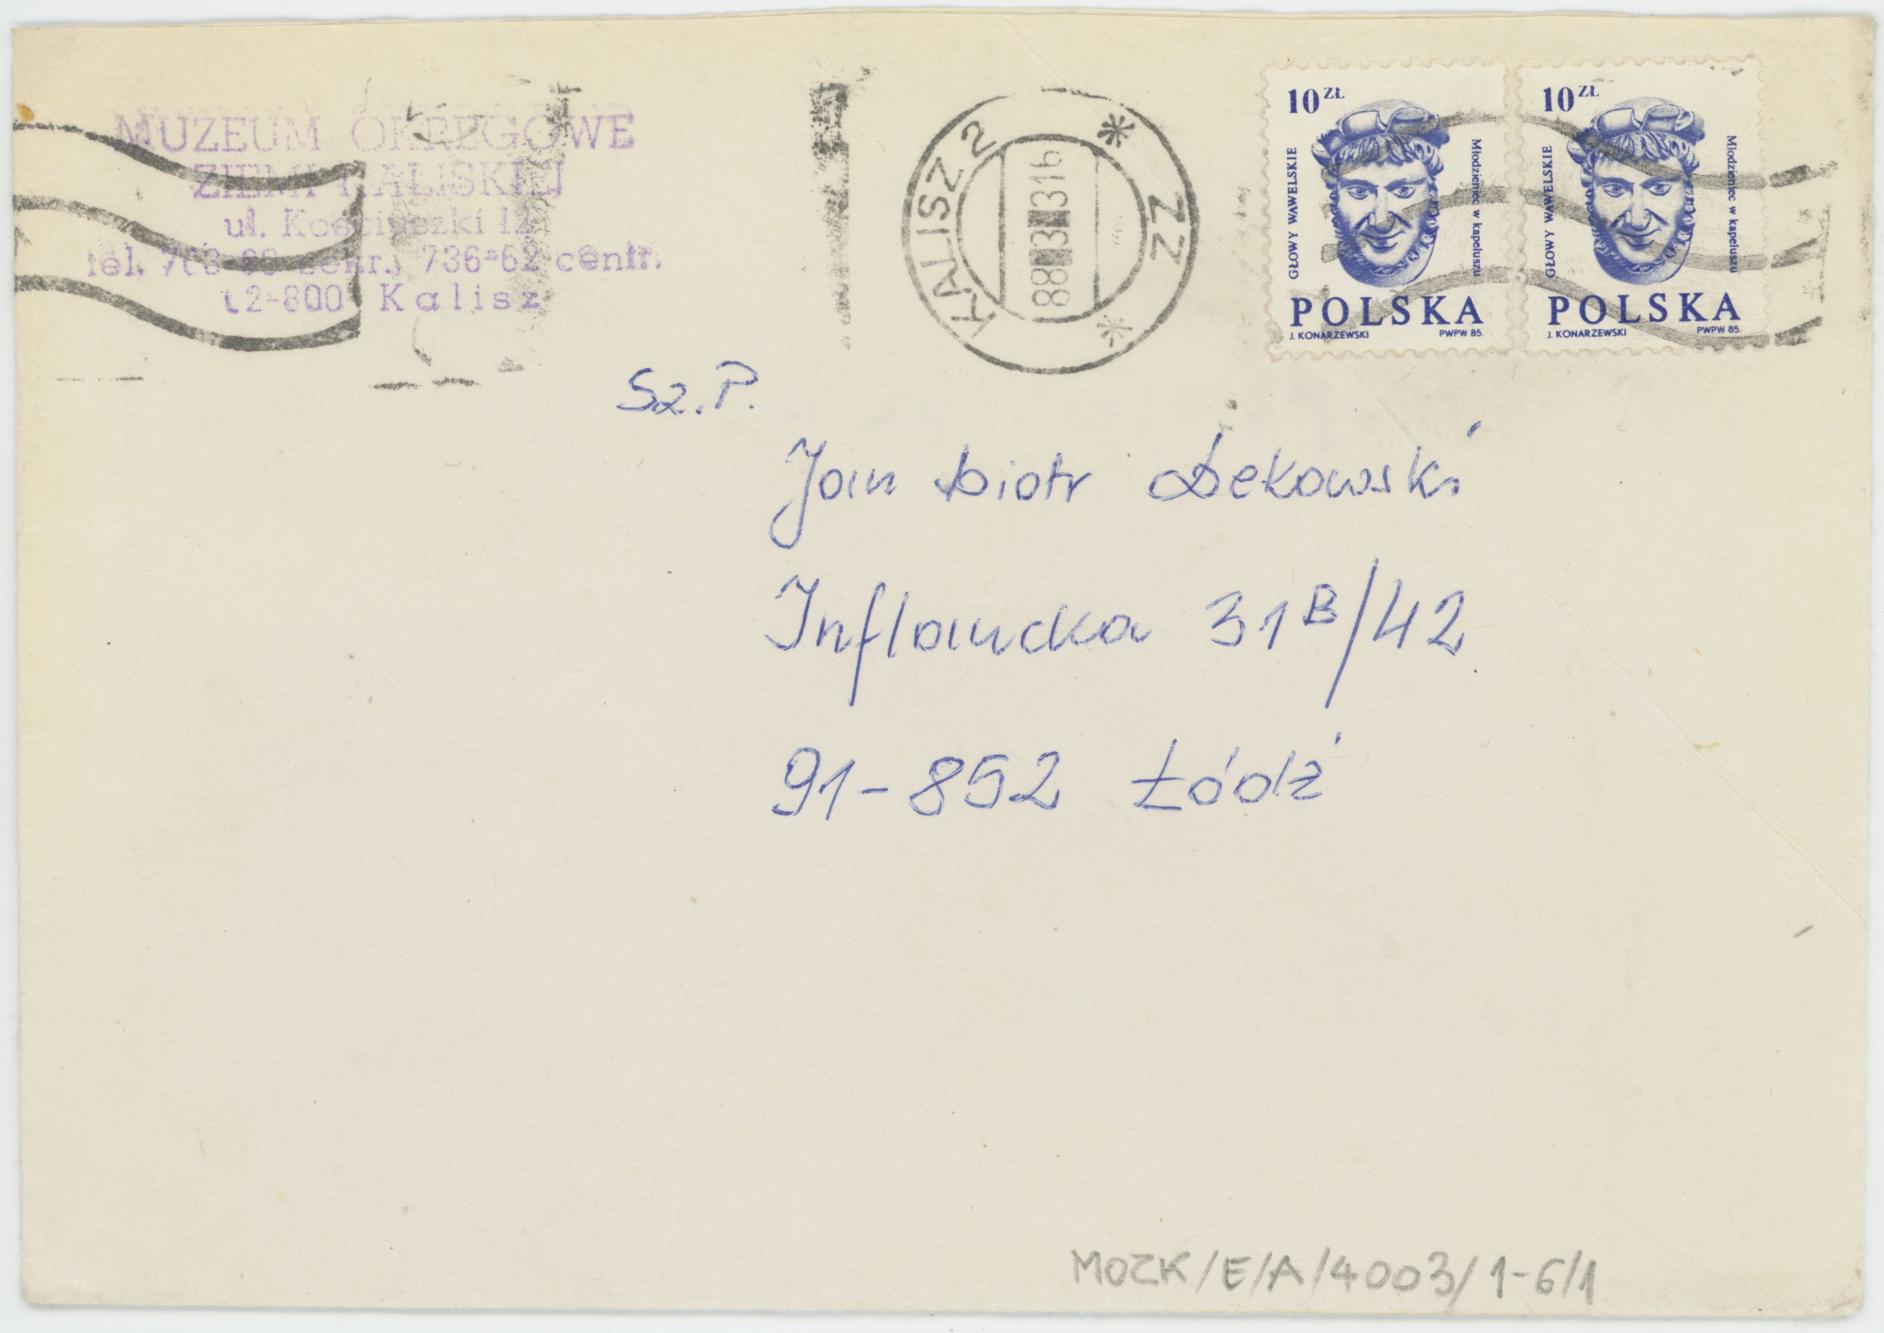 MUZEUM OKRĘGOWE
ZIEMI KALISKIEJ
ul. Kościuszki 12
tel. sekr., 736-62 centr.
62-800 Kalisz
KALISZ 2
ZZ
88 3 31
10 ZŁ
GŁOWY WAWELSKIE
Młodzieniec w kapeluszu
POLSKA
J. KONARZEWSKI PWPW 85.
10 ZŁ
GŁOWY WAWELSKIE
Młodzieniec w kapeluszu
POLSKA
J. KONARZEWSKI PWPW 85.
Sz. P.
Jan Piotr Dekowski
Inflancka 31B/42
91-852 Łódź
MOZK/E/A/4003/1-6/1